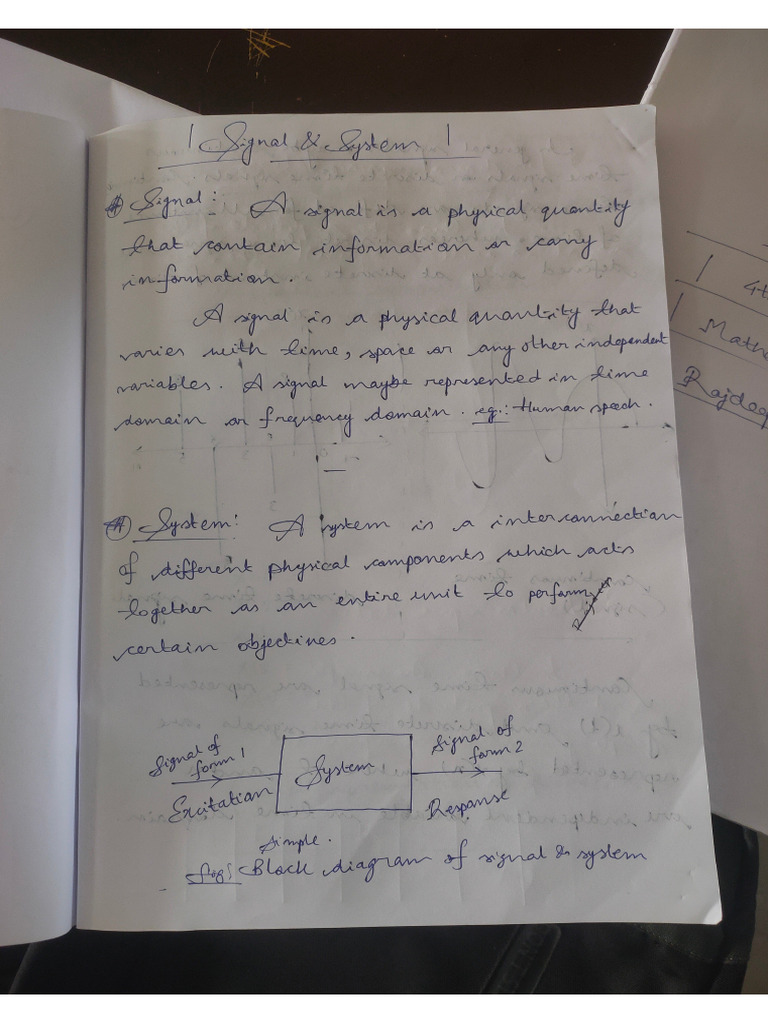 Signal & System
# Signal: A signal is a physical quantity
that contain information or carry
information.
A signal is a physical quantity that
varies with time, space or any other independent
variables. A signal maybe represented in time
domain or frequency domain. eg.: Human speech.
# System: A system is a interconnection
of different physical components which acts
together as an entire unit to perform
certain objectives.
Signal of
form 1
Excitation
System
Signal of
form 2
Response
Simple.
Fig: Block diagram of signal & system
4th
Mathe
Rajdeep